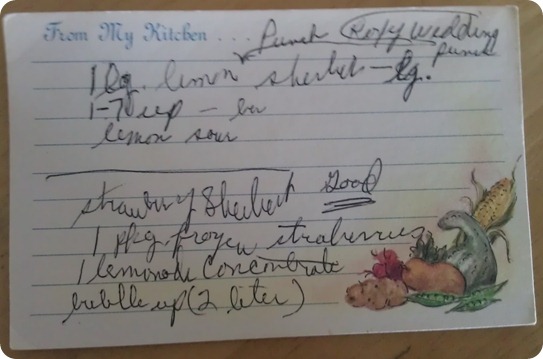 From My Kitchen . . . Punch Roxy Wedding
punch
1 lg. lemon sherbet - lg.
1-7 up -
lemon sour
strawberry Sherbert good
1 pkg. frozen straberries
1 lemonade Concentrate
bubble up (2 liter)